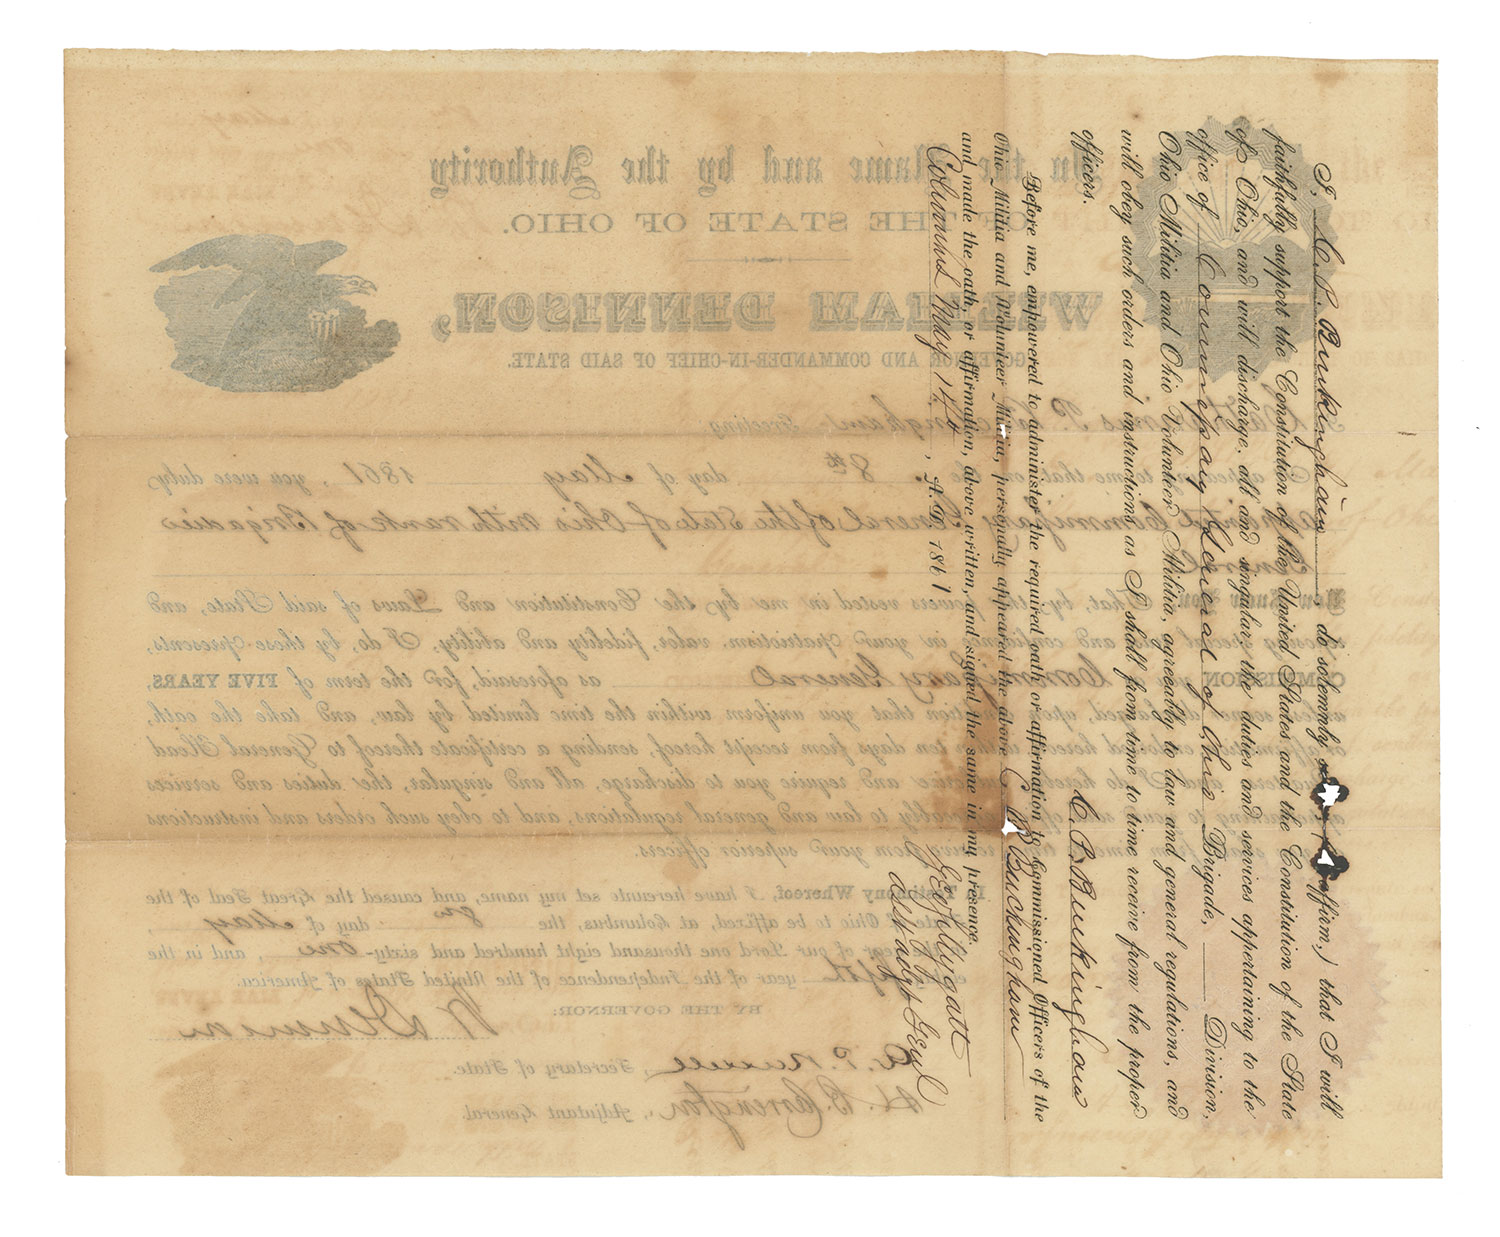 I, C. P. Buckingham do solemnly affirm,) that I will
faithfully support the Constitution of the United States and the Constitution of the State
of Ohio, and will discharge, all and singular, the duties and services appertaining to the
office of Commissary General of Ohio Brigade, Division,
Ohio Militia and Ohio Volunteer Militia, agreeably to law and general regulations, and
will obey such orders and instructions as I shall from time to time receive from the proper
officers.
C. P. Buckingham
Before me, empowered to administer the required oath or affirmation to Commissioned Officers of the
Ohio Militia and Volunteer Militia, personally appeared the above C P Buckingham
and made the oath, or affirmation, above written, and signed the same in my presence.
Columbus May 14th, A. D. 1861
In the Name and by the Authority
OF THE STATE OF OHIO.
WILLIAM DENNISON,
GOVERNOR AND COMMANDER-IN-CHIEF OF SAID STATE.
P. Buckingham Greeting
appearing to me that on the 8th day of May 1861, you were duly
appointed Commissary General of the State of Ohio with rank of Brigadier
General
Know you, That, by the powers vested in me by the Constitution and Laws of said State, and,
reposing special trust and confidence in your patriotism, valor, fidelity and ability, I do, by these presents,
COMMISSION you as Commissary General as aforesaid, for the term of FIVE YEARS,
unless sooner discharged, upon condition that you uniform within the time limited by law, and take the oath,
or affirmation, endorsed hereon, within ten days from receipt hereof, sending a certificate thereof to General Head
Quarters; and I do hereby authorize and require you to discharge, all and singular, the duties and services
appertaining to your said office, agreeably to law and general regulations, and to obey such orders and instructions
as you shall from time to time receive from your superior officers.
In Testimony Whereof, I have hereunto set my name, and caused the Great Seal of the
State of Ohio to be affixed, at Columbus, the 8th day of May,
in the year of our Lord one thousand eight hundred and sixty-one, and in the
eighty fifth year of the Independence of the United States of America.
BY THE GOVERNOR:
W Dennison
Secretary of State.
H. B. Carrington, Adjutant General.